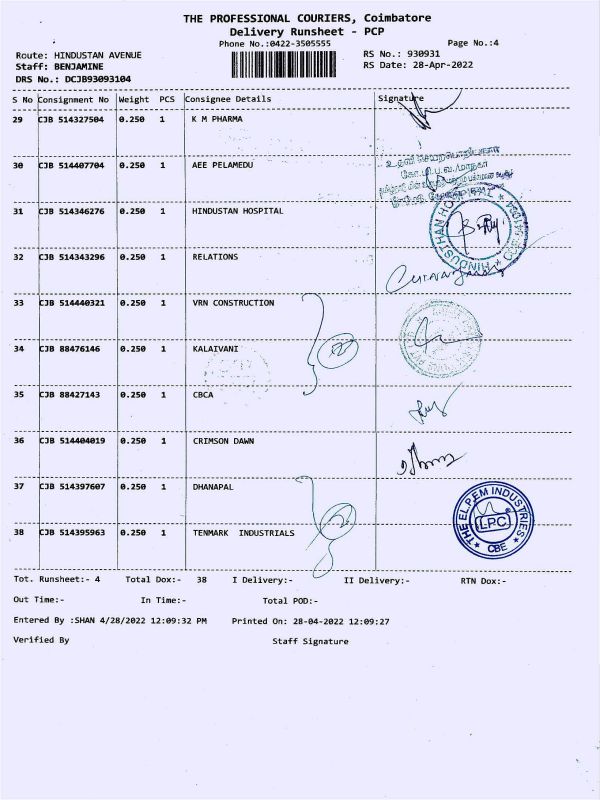 THE PROFESSIONAL COURIERS, Coimbatore
Delivery Runsheet - PCP
Phone No.:0422-3505555
Page No.:4
Route: HINDUSTAN AVENUE
RS No.: 930931
Staff: BENJAMINE
RS Date: 28-Apr-2022
DRS No.: DCJB93093104
S No Consignment No Weight PCS Consignee Details Signature
29 CJB 514327504 0.250 1 K M PHARMA
30 CJB 514407704 0.250 1 AEE PELAMEDU
31 CJB 514346276 0.250 1 HINDUSTAN HOSPITAL
32 CJB 514343296 0.250 1 RELATIONS
33 CJB 514440321 0.250 1 VRN CONSTRUCTION
34 CJB 88476146 0.250 1 KALAIVANI
35 CJB 88427143 0.250 1 CBCA
36 CJB 514404019 0.250 1 CRIMSON DAWN
37 CJB 514397607 0.250 1 DHANAPAL
THE EL.P.EM INDUSTRIES
LPC
CBE
38 CJB 514395963 0.250 1 TENMARK INDUSTRIALS
Tot. Runsheet:- 4 Total Dox:- 38 I Delivery:- II Delivery:- RTN Dox:-
Out Time:- In Time:- Total POD:-
Entered By :SHAN 4/28/2022 12:09:32 PM Printed On: 28-04-2022 12:09:27
Verified By Staff Signature